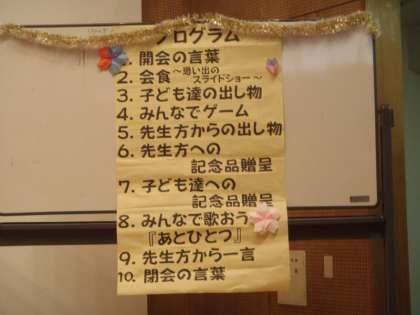 プログラム
1. 開会の言葉
2. 会食 ～思い出の
スライドショー～
3. 子ども達の出し物
4. みんなでゲーム
5. 先生方からの出し物
6. 先生方への
記念品贈呈
7. 子ども達への
記念品贈呈
8. みんなで歌おう
『あとひとつ』
9. 先生方から一言
10. 閉会の言葉